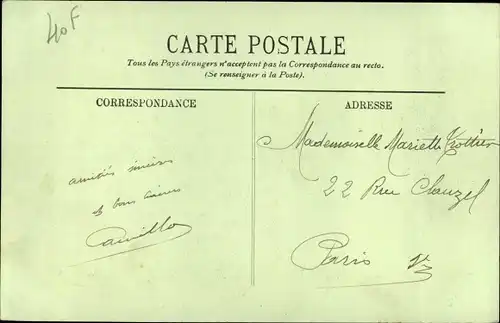 40F
CARTE POSTALE
Tous les Pays étrangers n'acceptent pas la Correspondance au recto.
(Se renseigner à la Poste).
CORRESPONDANCE
ADRESSE
amitiés sincères
et bons baisers
Camille
Mademoiselle Mariette
22 Rue Clauzel
Paris